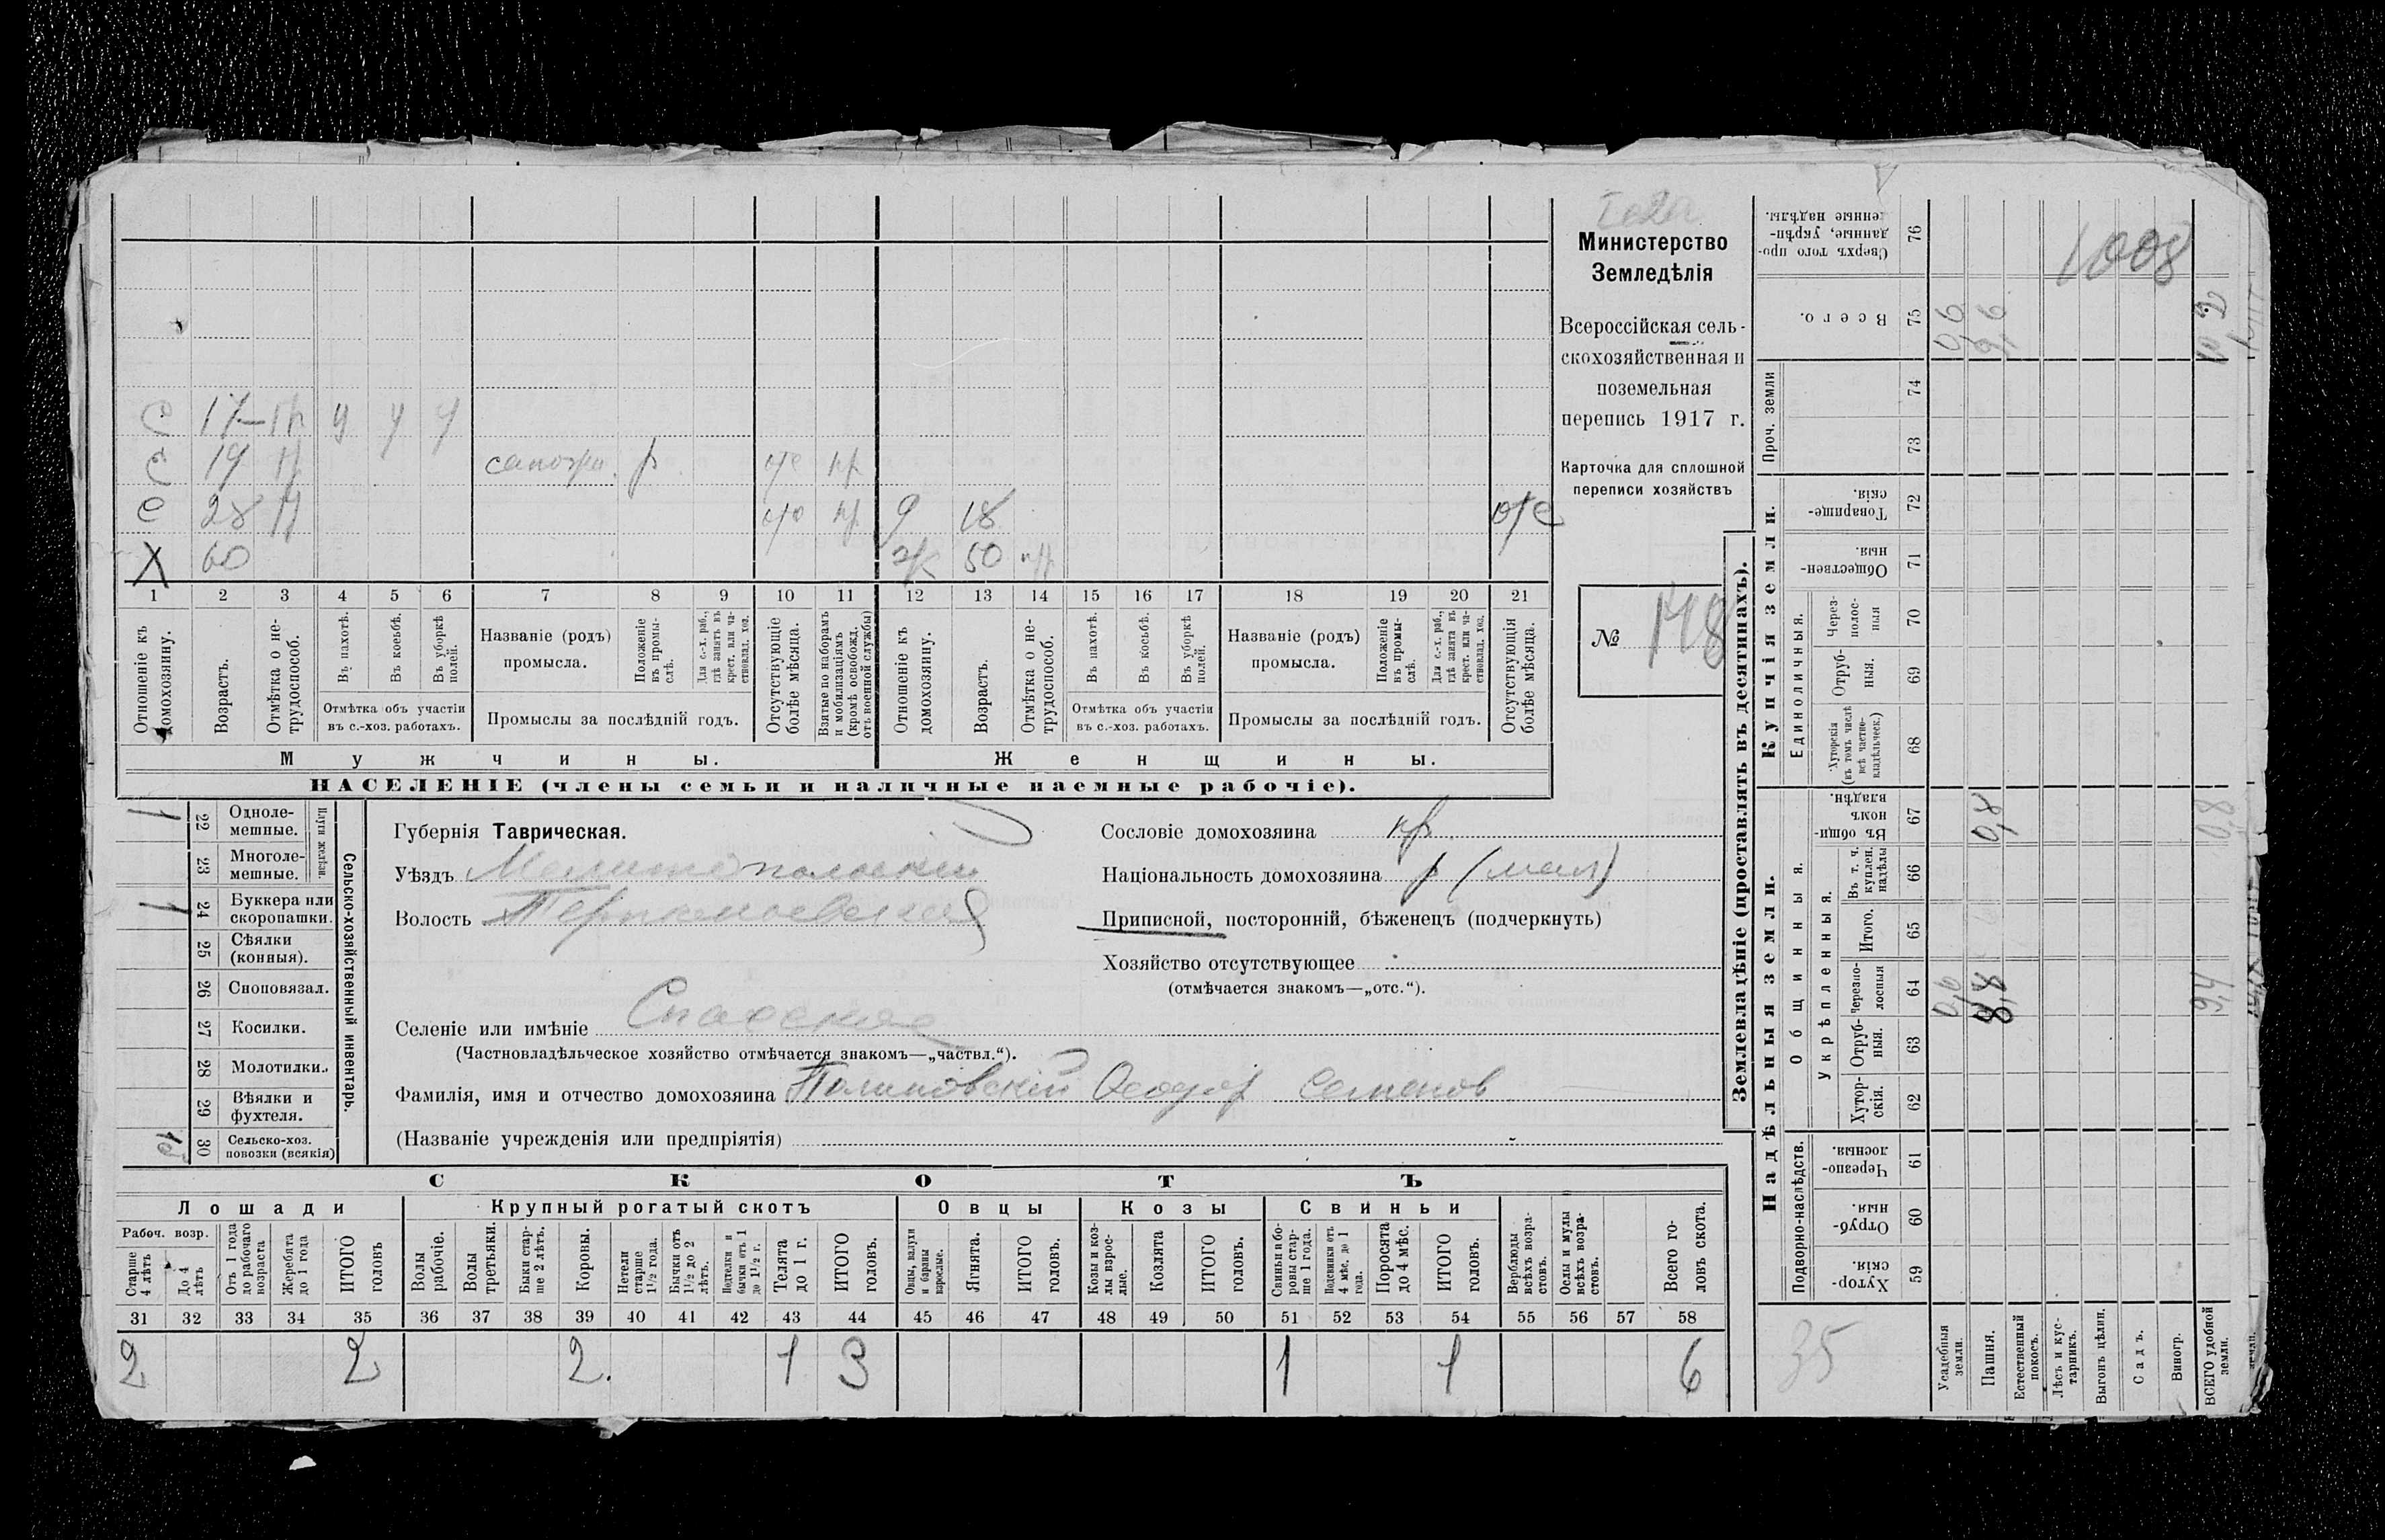 Министерство
Земледѣлія
Всероссійская сель-
скохозяйственная и
поземельная
перепись 1917 г.
Карточка для сплошной
переписи хозяйствъ
№ 148
С 17 — у у у
С 19 р о/с
С 28 о/с 9 18 о/с
Х 60 ж 50
1 2 3 4 5 6 7 8 9 10 11 12 13 14 15 16 17 18 19 20 21
Отношеніе къ домохозяину.
Возрастъ.
Отмѣтка о не-трудоспособ.
Въ пахотѣ.
Въ косьбѣ.
Въ уборкѣ полей.
Отмѣтка объ участіи
въ с.-хоз. работахъ.
Названіе (родъ)
промысла.
Положеніе въ промы-слѣ.
Для с.-х. раб., гдѣ занятъ въ крест. или ча-стновлад. хоз.
Промыслы за послѣдній годъ.
Отсутствующіе болѣе мѣсяца.
Взятые по наборамъ и мобилизаціямъ (кромѣ освобожд. отъ военной службы)
Отношеніе къ домохозяину.
Возрастъ.
Отмѣтка о не-трудоспособ.
Въ пахотѣ.
Въ косьбѣ.
Въ уборкѣ полей.
Отмѣтка объ участіи
въ с.-хоз. работахъ.
Названіе (родъ)
промысла.
Положеніе въ промы-слѣ.
Для с.-х. раб., гдѣ занята въ крест. или ча-стновлад. хоз.
Промыслы за послѣдній годъ.
Отсутствующія болѣе мѣсяца.
Мужчины. Женщины.
НАСЕЛЕНІЕ (члены семьи и наличные наемные рабочіе).
Сельско-хозяйственный инвентарь.
Плуги желѣзн.
1 22 Одноле-мешные.
23 Многоле-мешные.
1 24 Буккера или скоропашки.
25 Сѣялки (конныя).
26 Сноповязал.
27 Косилки.
28 Молотилки.
29 Вѣялки и фухтеля.
30 Сельско-хоз. повозки (всякія)
Губернія Таврическая.
Уѣздъ Мелитопольскій
Волость
Селеніе или имѣніе Спасское
(Частновладѣльческое хозяйство отмѣчается знакомъ—„частвл.“).
Фамилія, имя и отчество домохозяина Ѳеодор Семенов
(Названіе учрежденія или предпріятія)
Сословіе домохозяина кр.
Національность домохозяина р (мал)
Приписной, посторонній, бѣженецъ (подчеркнуть)
Хозяйство отсутствующее
(отмѣчается знакомъ—„отс.“).
СКОТЪ
Лошади Крупный рогатый скотъ Овцы Козы Свиньи
Рабоч. возр.
Старше 4 лѣтъ
До 4 лѣтъ
Отъ 1 года до рабочаго возраста
Жеребята до 1 года
ИТОГО головъ
Волы рабочіе.
Волы третьяки.
Быки стар-ше 2 лѣтъ.
Коровы.
Нетели старше 1½ года.
Бычки отъ 1½ до 2 лѣтъ.
Подтелки и бычки отъ 1 до 1½ г.
Телята до 1 г.
ИТОГО головъ.
Овцы, валухи и бараны взрослые.
Ягнята.
ИТОГО головъ.
Козы и коз-лы взрос-лые.
Козлята
ИТОГО головъ.
Свиньи и бо-ровы стар-ше 1 года.
Подсвинки отъ 4 мѣс. до 1 года.
Поросята до 4 мѣс.
ИТОГО головъ.
Верблюды всѣхъ возра-стовъ.
Ослы и мулы всѣхъ возра-стовъ.
Всего го-ловъ скота.
31 32 33 34 35 36 37 38 39 40 41 42 43 44 45 46 47 48 49 50 51 52 53 54 55 56 57 58
2 2 2. 1 3 1 1 6
Землевладѣніе (проставлять въ десятинахъ).
Надѣльныя земли.
Купчія земли.
Проч. земли
Подворно-наслѣдств.
Общинныя.
Укрѣпленныя.
Единоличныя.
Сверхъ того про-данные, укрѣп-ленные надѣлы. 76
Всего. 75 0,6 9,6 10,2
74
73
Товарище-скія. 72
Обществен-ныя. 71
Через-полос-ныя 70
Отруб-ныя. 69
Хуторскія (въ томъ числѣ всѣ частно-владѣльческ.) 68
Въ общи-номъ владѣн. 67 0,8 0,8
Въ т. ч. куплен. надѣлы 66
Итого. 65
Черезпо-лосныя 64 0,6 8,8 9,4
Отруб-ныя. 63
Хутор-скія. 62
Черезпо-лосныя. 61
Отруб-ныя. 60
Хутор-скія. 59
Усадебныя земли.
Пашня.
Естественный покосъ.
Лѣсъ и кус-тарникъ.
Выгонъ цѣлин.
Садъ.
Виногр.
ВСЕГО удобной земли.
1008
35